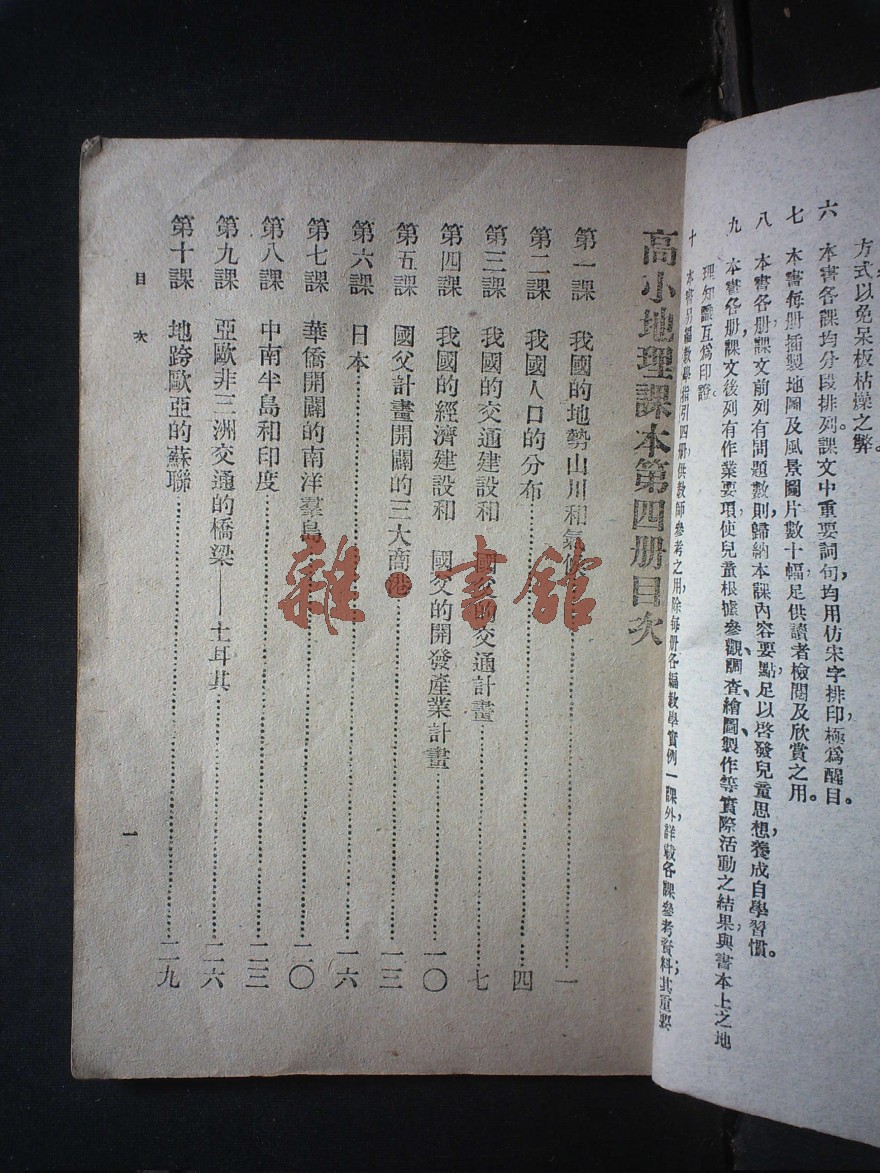 方式以免呆板枯燥之弊。
六　本書各課均分段排列課文中重要詞句，均用仿宋字排印，極爲醒目。
七　本書每册插製地圖及風景圖片數十幅，足供讀者檢閱及欣賞之用。
八　本書各册，課文前列有問題數則歸納本課內容要點足以啓發兒童思想，養成自學習慣。
九　本書各册，課文後列有作業要項，使兒童根據參觀、調查、繪圖、製作等實際活動之結果，與書本上之地
理知識互爲印證。
十　本書另編教學指引四册，供教師參考之用，除每册各編教學實例一課外，詳載各課參考資料；其重要
高小地理課本第四册目次
第一課　我國的地勢山川和氣候……一
第二課　我國人口的分布……四
第三課　我國的交通建設和　國父的交通計畫……七
第四課　我國的經濟建設和　國父的開發產業計畫……一〇
第五課　國父計畫開闢的三大商港……一三
第六課　日本……一六
第七課　華僑開闢的南洋羣島……二〇
第八課　中南半島和印度……二三
第九課　亞歐非三洲交通的橋梁——土耳其……二六
第十課　地跨歐亞的蘇聯……二九
目次　一
雜·書館